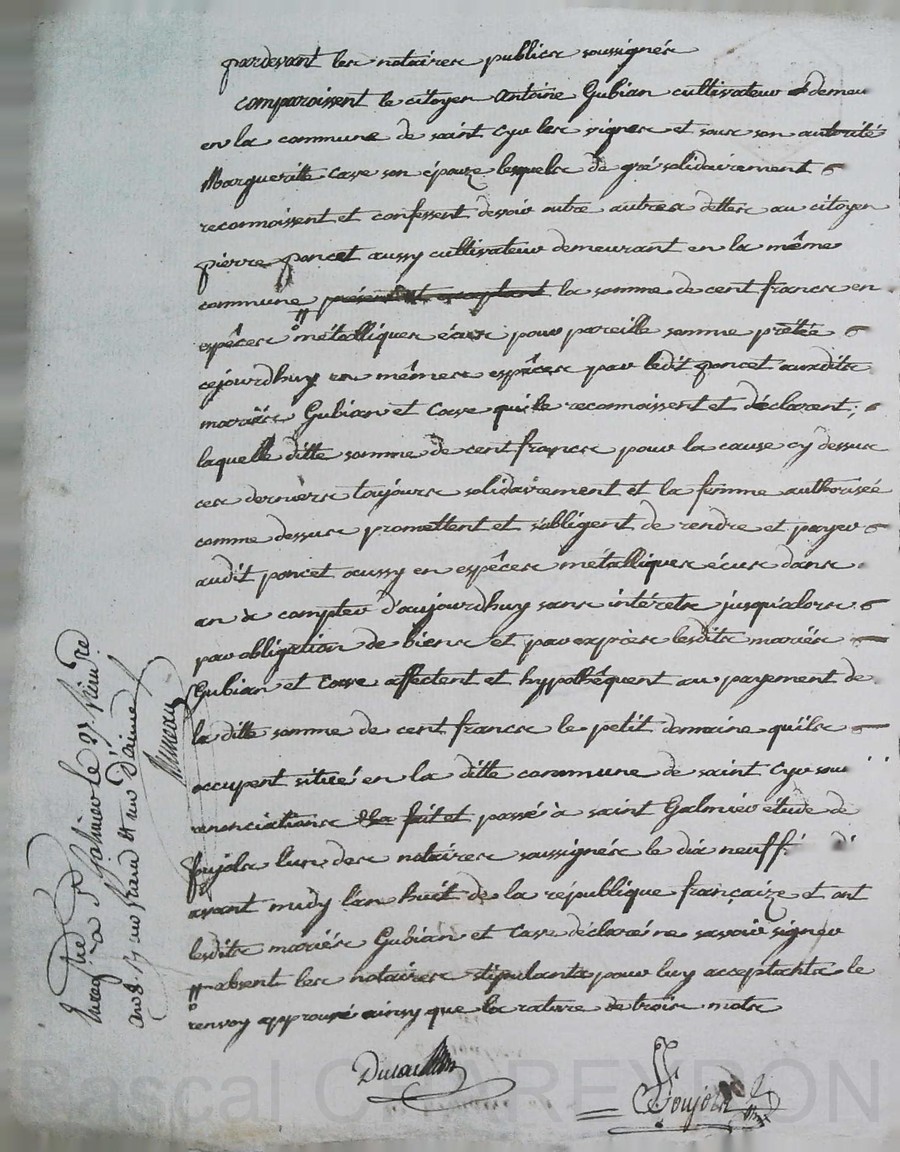 pardevant les notaires publics soussignés
comparoissent le citoyen antoine Gubian cultivateur demeu
en la commune de saint Cyr les vignes et sous son autorité
Margueritte Cave son épouze lesquels de gré solidairement
reconnoissent et confessent devoir outre autres dettes au citoyen
pierre poncet aussy cultivateur demeurant en la même
commune présent et acceptant la somme de cent francs en
espêces métalliques écus pour pareille somme prêtée
cejourdhuy en mêmes espêces par ledit poncet auxdits
mariés Gubian et Cave qui le reconnoissent et déclarent,
laquelle ditte somme de cent francs pour la cause cy dessus
ces derniers toujours solidairement et la femme authorisée
comme dessus promettent et s'obligent de rendre et payer
audit poncet aussy en espêces métalliques écus dans
an à compter d'aujourdhuy sans intérets jusqu'alors
par obligation de biens et par exprès lesdits mariés
Gubian et Cave affectent et hypothéquent au payement de
la ditte somme de cent francs le petit domaine quils
occupent situé en la ditte commune de saint Cyr sous
renonciations fait et passé à saint Galmier étude de
poujols lun des notaires soussignés le dix neuff
avant midy lan huit de la république françaize et ont
lesdits mariés Gubian et Cave déclaré ne savoir signer
absent les notaires stipulants pour luy acceptants le
renvoy approuvé ainsy que la rature de trois mots
Poujols
Pascal CHAREYRON